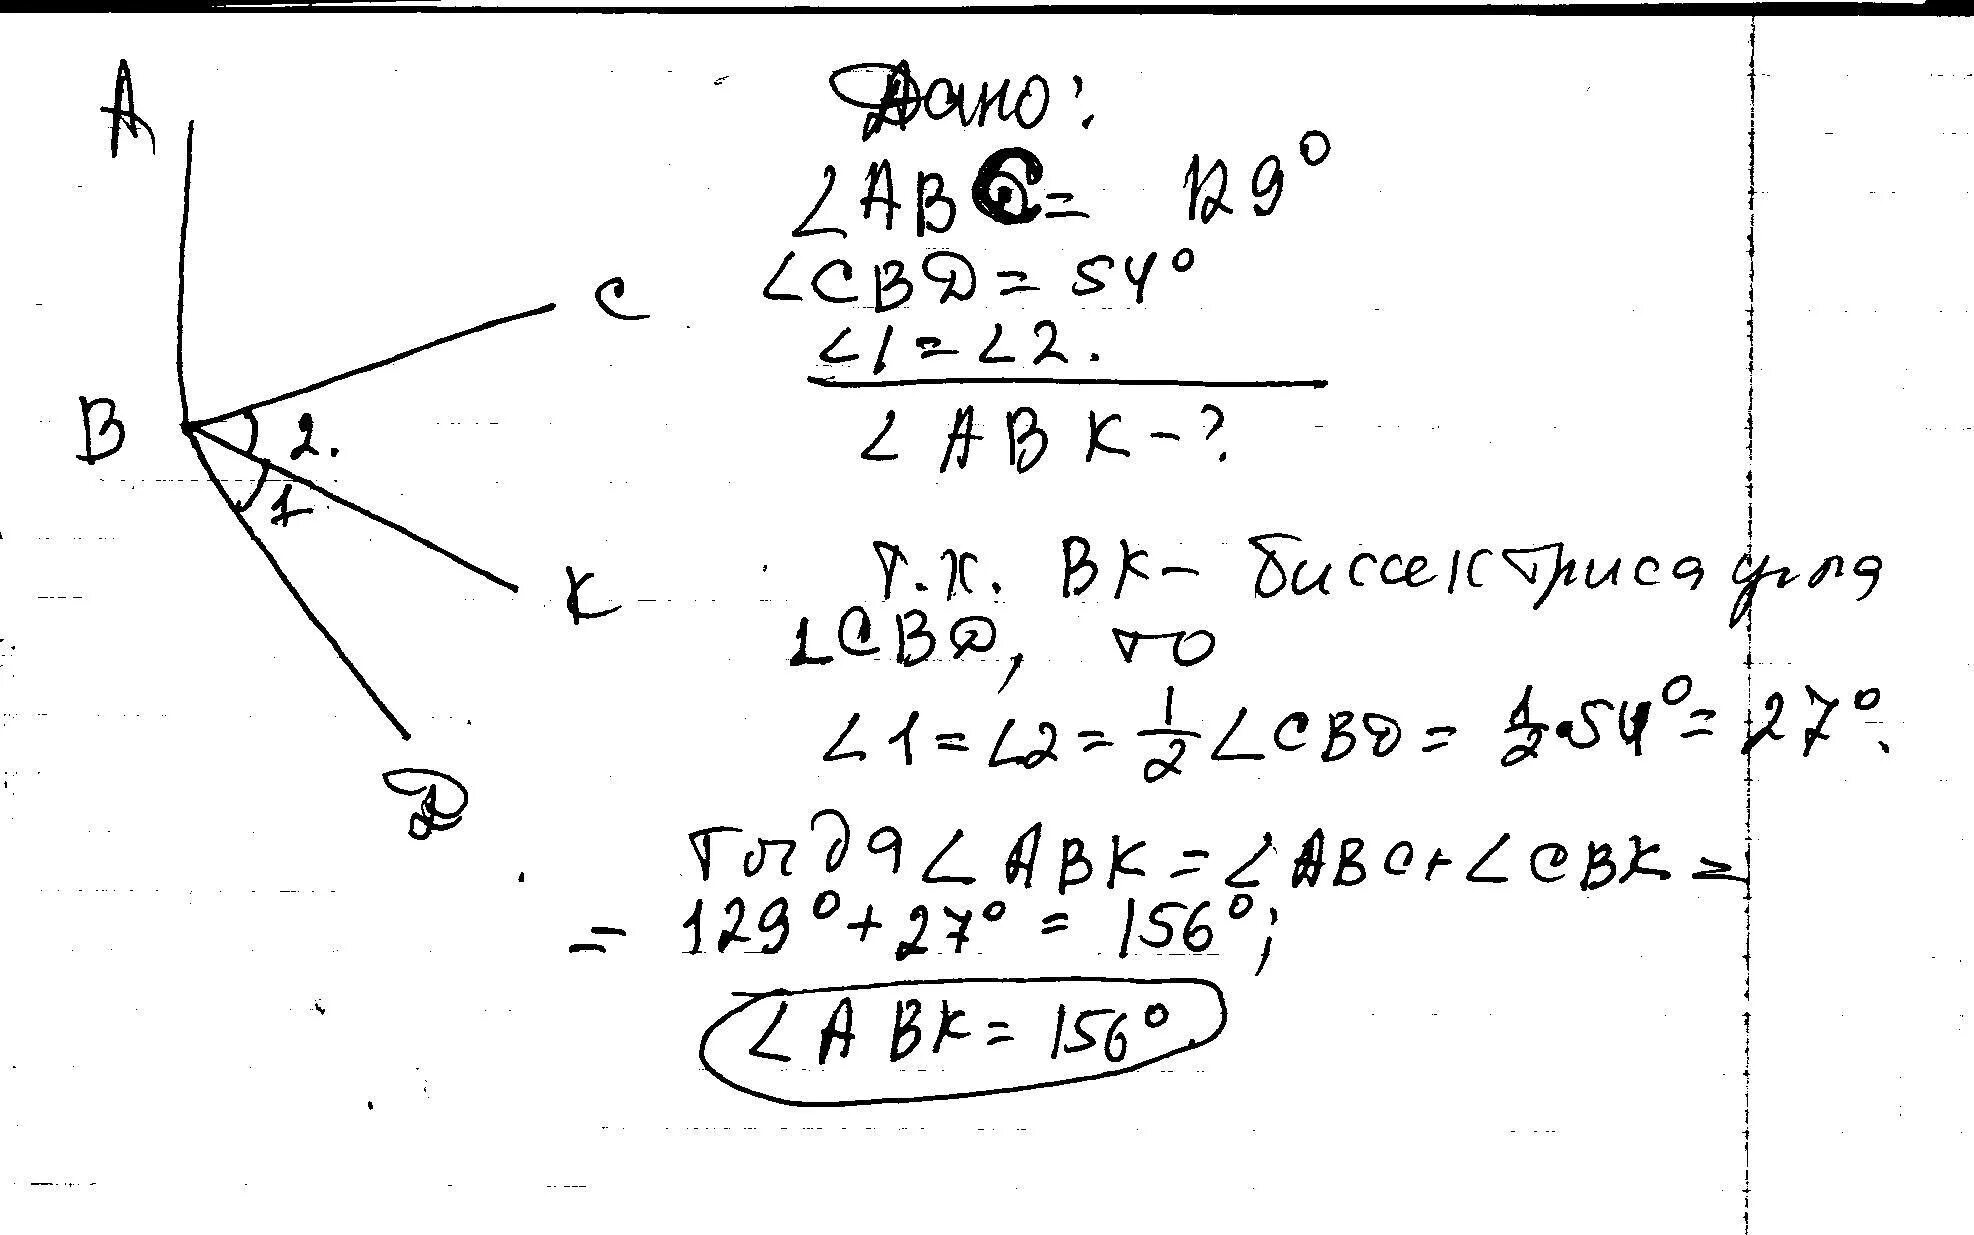 A
B
C
K
D
2.
1
Дано:
∠ABC = 129°
∠CBD = 54°
∠1 = ∠2.
∠ABK - ?
т.к. BK - биссектриса угла
∠CBD, то
∠1 = ∠2 = 1/2 ∠CBD = 1/2 · 54° = 27°.
Тогда ∠ABK = ∠ABC + ∠CBK =
= 129° + 27° = 156°;
∠ABK = 156°